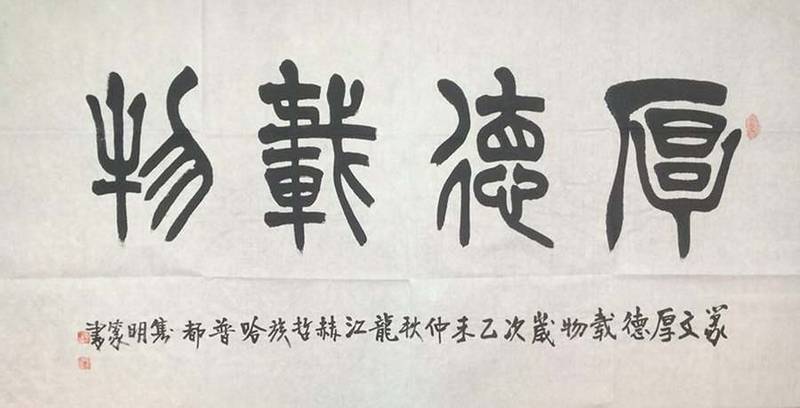 厚德載物
篆文厚德載物歲次乙未仲秋龍江赫哲族哈普都隽明篆書